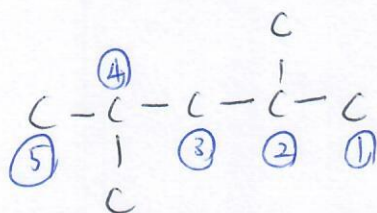 C
④
C – C – C – C – C
⑤ ③ ② ①
C